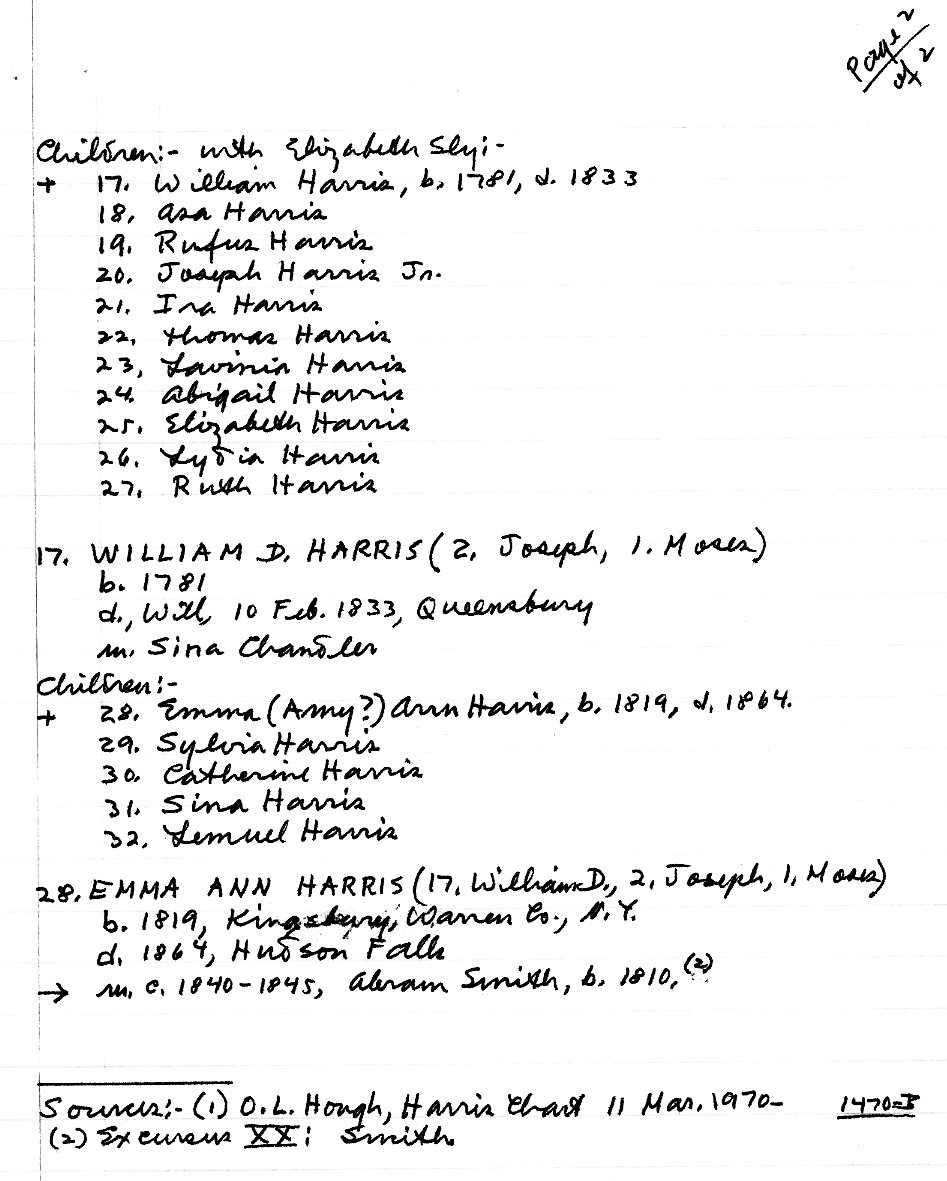 Page 2
of 2
Children:- with Elizabeth Sly:-
+ 17. William Harris, b. 1781, d. 1833
18. Asa Harris
19. Rufus Harris
20. Joseph Harris Jr.
21. Ira Harris
22. Thomas Harris
23. Lavinia Harris
24. Abigail Harris
25. Elizabeth Harris
26. Lydia Harris
27. Ruth Harris
17. WILLIAM D. HARRIS (2. Joseph, 1. Moses)
b. 1781
d., Will, 10 Feb. 1833, Queensbury
m. Sina Chandler
Children:-
+ 28. Emma (Amy?) Ann Harris, b. 1819, d. 1864.
29. Sylvia Harris
30. Catherine Harris
31. Sina Harris
32. Lemuel Harris
28. EMMA ANN HARRIS (17. William D., 2. Joseph, 1. Moses)
b. 1819, Kingsbury, Warren Co., N.Y.
d. 1864, Hudson Falls
→ m. c. 1840-1845, Abram Smith, b. 1810, (2)
Sources:- (1) O.L. Hough, Harris Chart 11 Mar. 1970- 1470-B
(2) Excursus XX: Smith